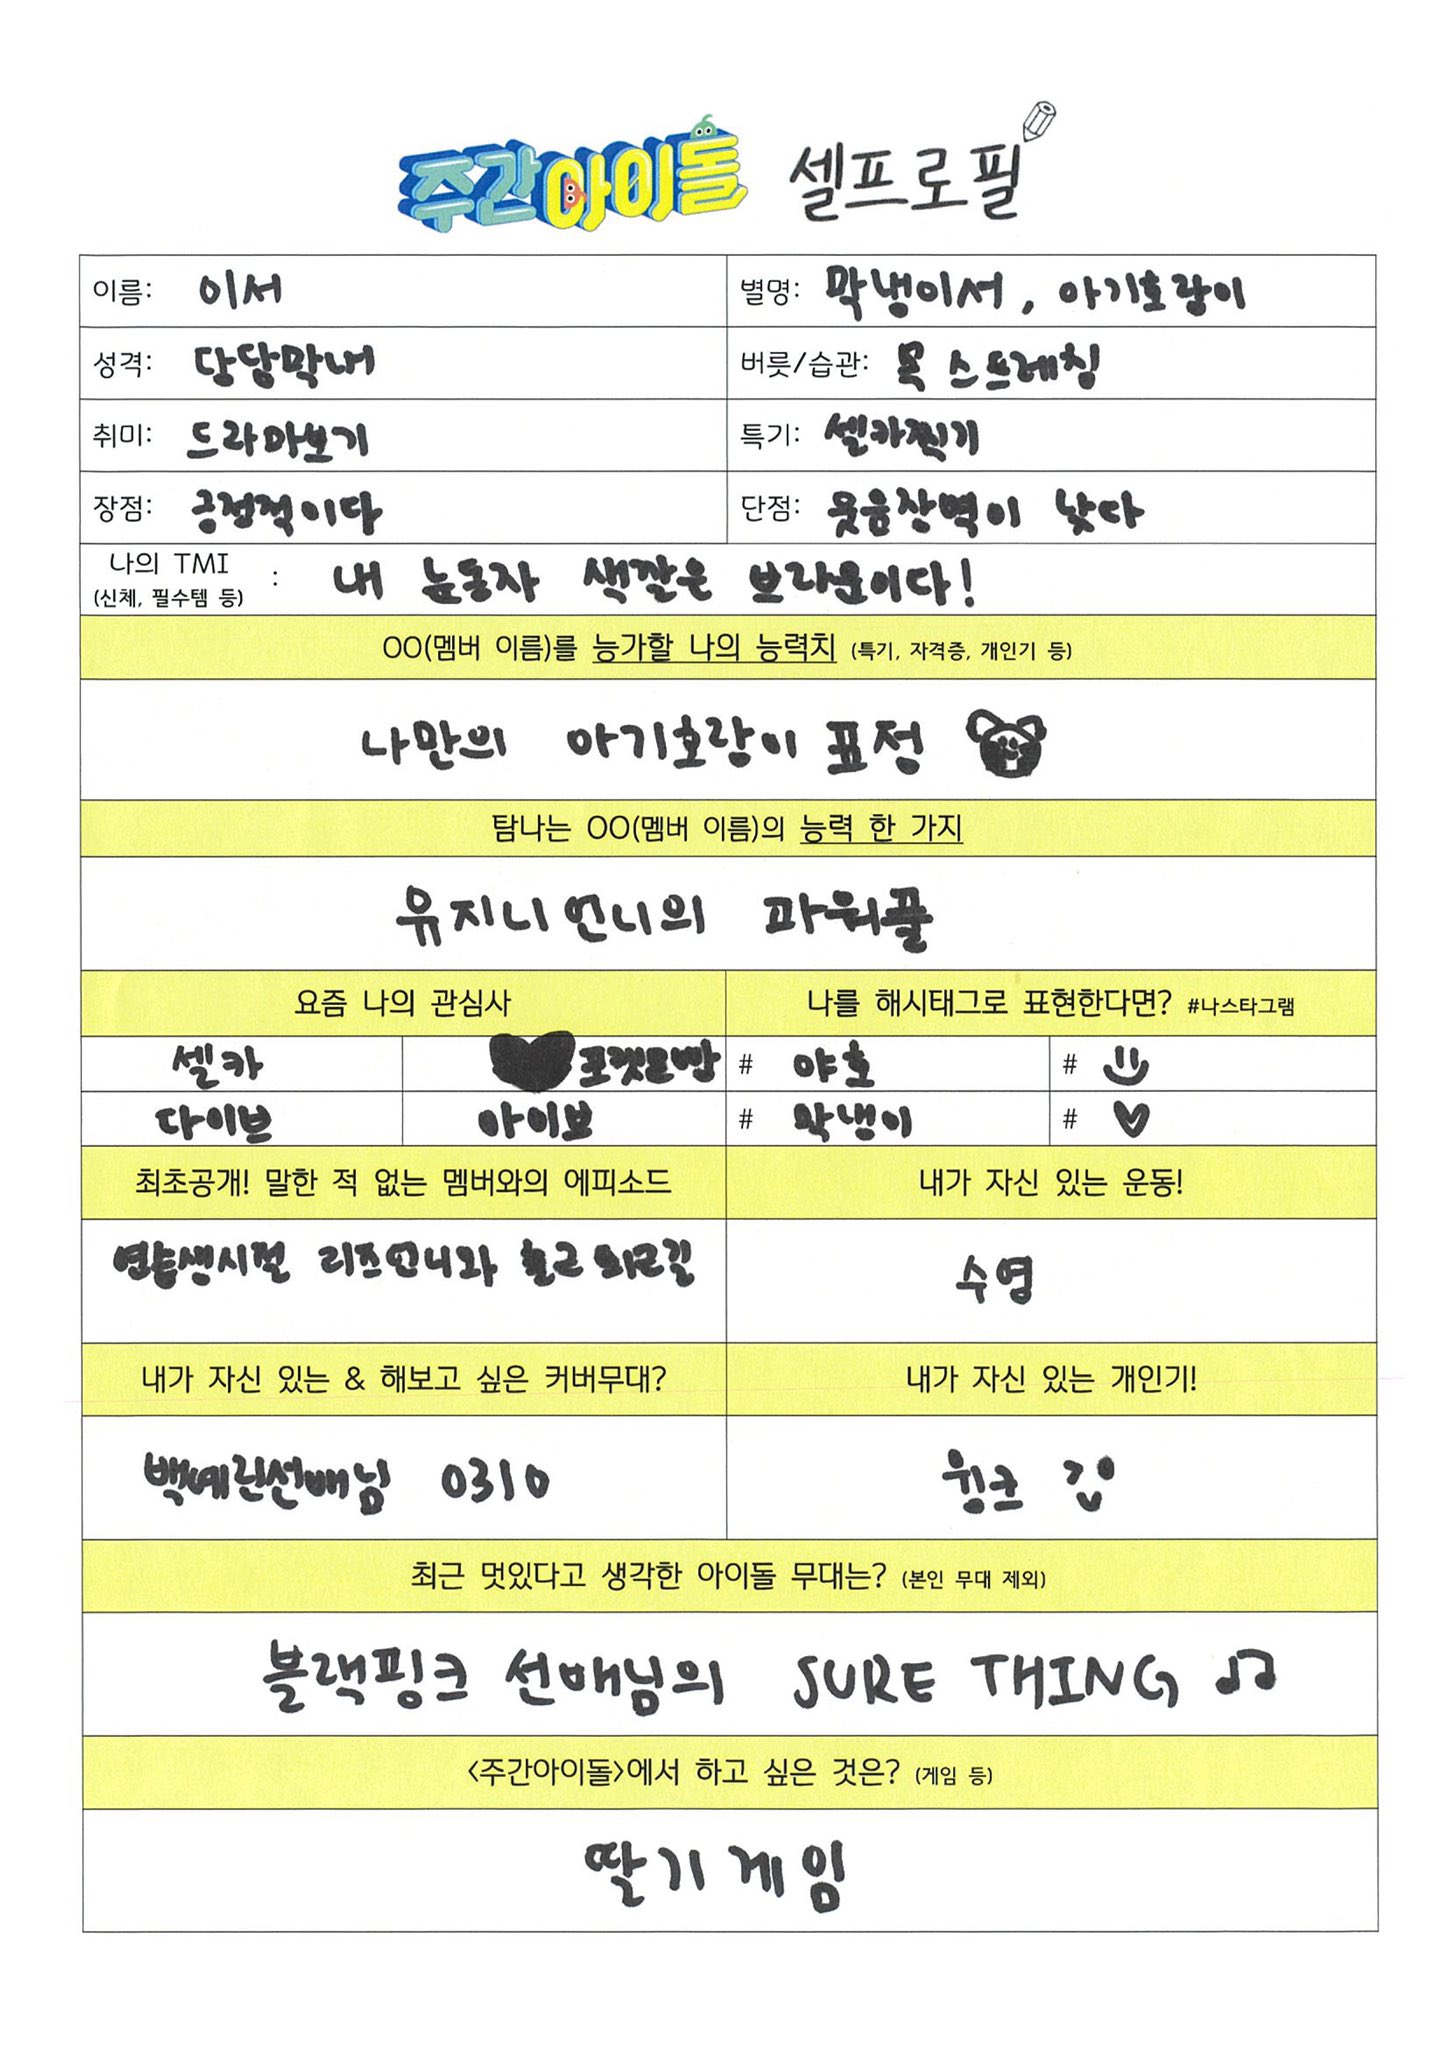 주간아이돌 셀프로필
이름: 이서 별명: 막냉이서, 아기호랑이
성격: 당당막내 버릇/습관: 목 스트레칭
취미: 드라마보기 특기: 셀카찍기
장점: 긍정적이다 단점: 웃음장벽이 낮다
나의 TMI : 내 눈동자 색깔은 브라운이다!
(신체, 필수템 등)
OO(멤버 이름)를 능가할 나의 능력치 (특기, 자격증, 개인기 등)
나만의 아기호랑이 표정
탐나는 OO(멤버 이름)의 능력 한 가지
유지니언니의 파워풀
요즘 나의 관심사 나를 해시태그로 표현한다면? #나스타그램
셀카 포켓몬빵 # 야호 #
다이브 아이브 # 막냉이 #
최초공개! 말한 적 없는 멤버와의 에피소드 내가 자신 있는 운동!
연습생시절 리즈언니와 출근 퇴근길 수영
내가 자신 있는 & 해보고 싶은 커버무대? 내가 자신 있는 개인기!
백예린선배님 0310 윙크
최근 멋있다고 생각한 아이돌 무대는? (본인 무대 제외)
블랙핑크 선배님의 SURE THING
<주간아이돌>에서 하고 싶은 것은? (게임 등)
딸기게임